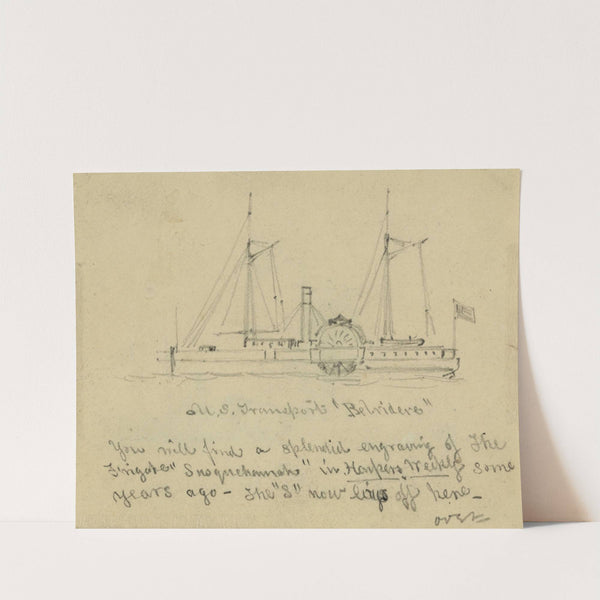 U.S. Transport "Belvidere"
You will find a splendid engraving of the
Frigate "Susquehannah" in Harpers Weekly some
years ago - The "S" now lays off here -
over